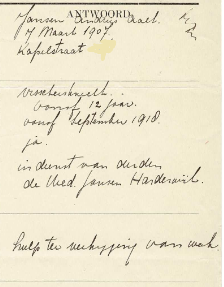 ANTWOORD
Jansen
7 Maart 1907.
Kapelstraat
Visschersknecht.
vanaf 12 jaar.
vanaf September 1918
ja.
in dienst van derden
de Wed. Jansen Harderwijk.
hulp ter verkrijging van werk